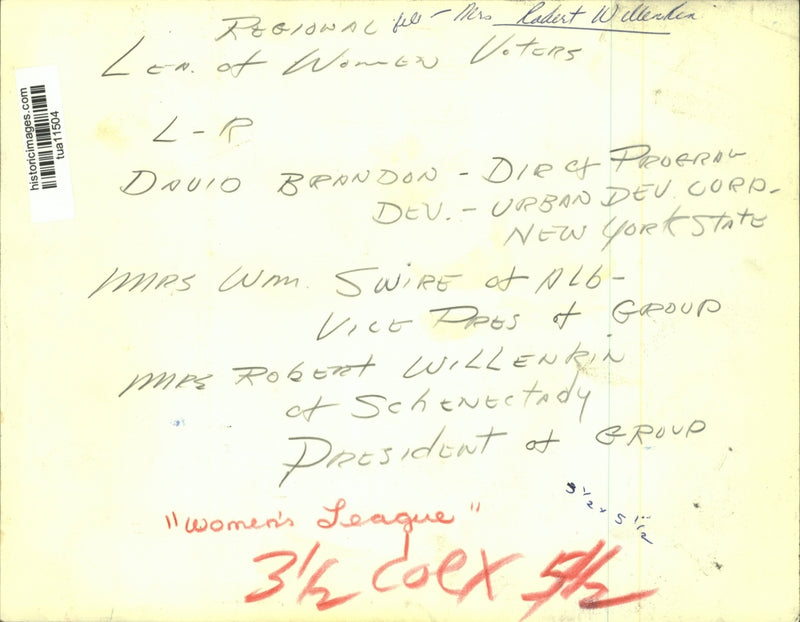 REGIONAL file - Mrs Robert Willenkin
LEA. of WOMEN VOTERS
historicimages.com
tua11504
L - R
DAVID BRANDON - DIR of PROGRAM
DEV. - URBAN DEV. CORP.
NEW YORK STATE
MRS WM. SWIRE of Alb -
VICE PRES of GROUP
MRS ROBERT WILLENKIN
of SCHENECTADY
PRESIDENT of GROUP
3 1/2 x 5 1/2
"Women's League"
3 1/2 col x 5 1/2